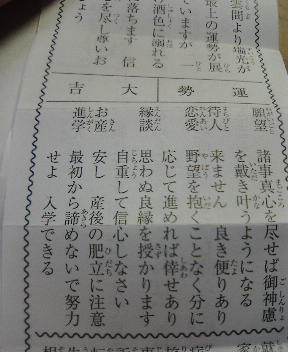 雲間より陽光が
最上の運勢が展
ていますが 一
酒色に溺れる
落ちます 信
を尽し尊いお
運勢 大吉
願望 諸事真心を尽せば御神慮
を戴き叶うようになる
待人 来ません 良き便りあり
恋愛 野望を抱くことなく分に
応じて進めれば倖せあり
縁談 思わぬ良縁を授かります
自重して信心しなさい
お産 安し 産後の肥立に注意
進学 最初から諦めないで努力
せよ 入学できる